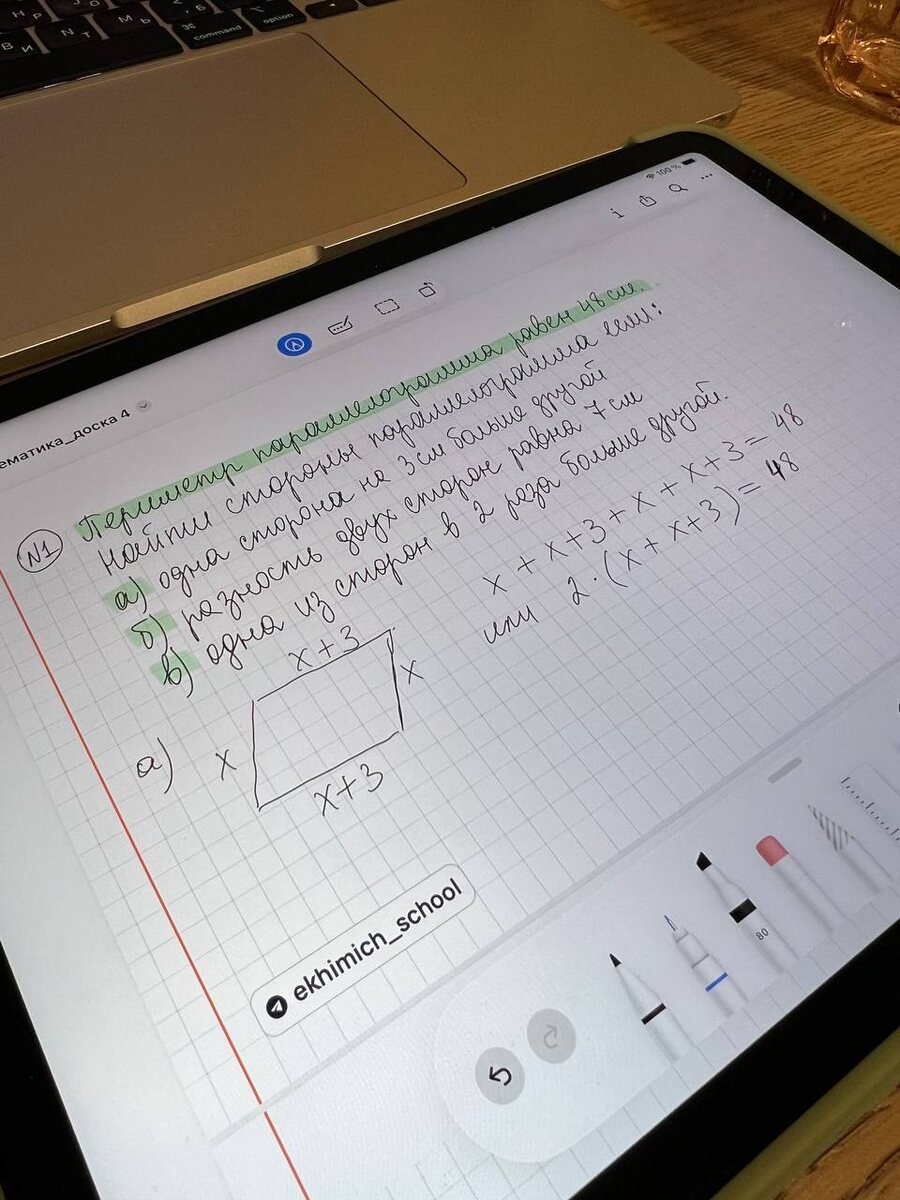 command
option
100 %
ематика_доска 4
N1
Периметр параллелограмма равен 48 см.
Найти стороны параллелограмма если:
а) одна сторона на 3 см больше другой
б) разность двух сторон равна 7 см
в) одна из сторон в 2 раза больше другой.
x + x+3 + x + x+3 = 48
или 2·(x + x+3) = 48
а)
x+3
x
x
x+3
ekhimich_school
80